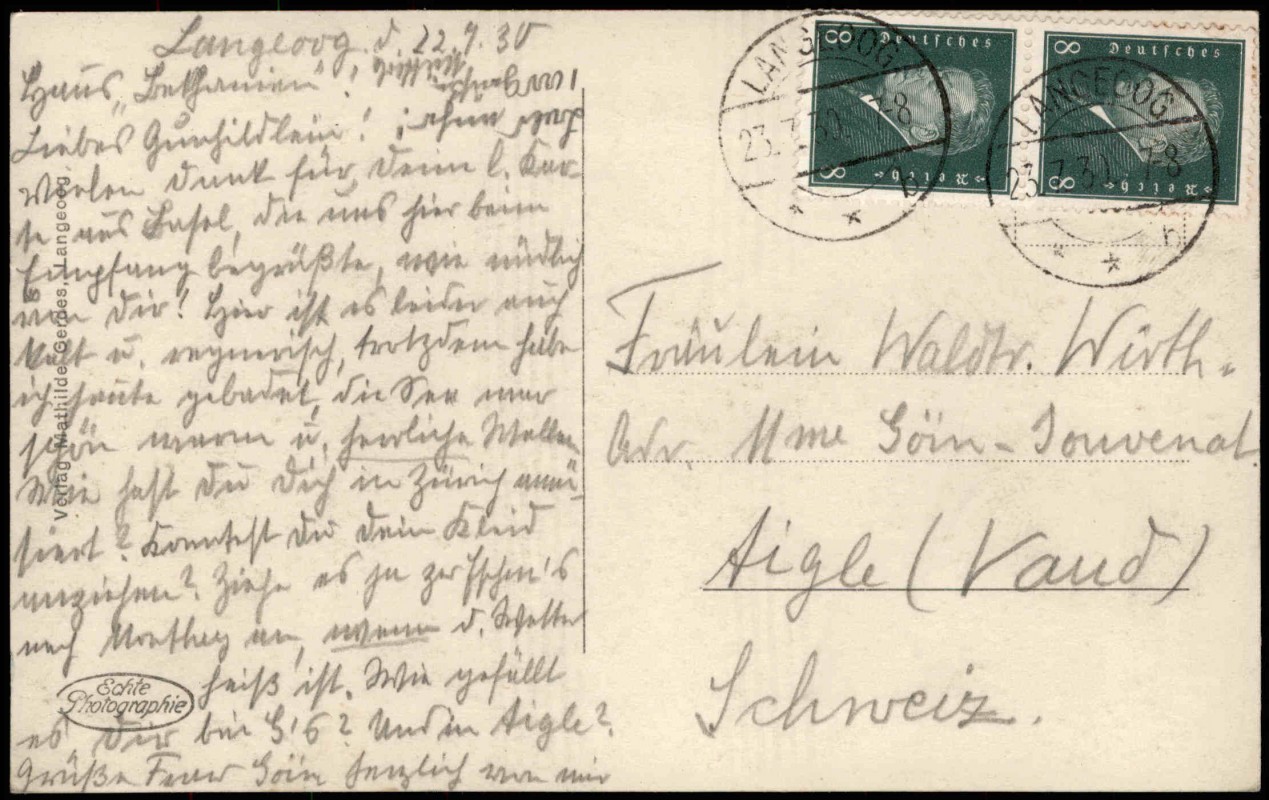 Langeoog d. 22.7.30
Haus "Bethanien"!
Liebes Gunhildlein!
Vielen Dank für Deine l. Kar-
te aus Basel, die uns hier beim
Empfang begrüßte, wie nüdlich
von Dir! Hier ist es leider auch
kalt u. regnerisch, trotzdem habe
ich heute gebadet, die See war
schön warm u. herrliche Wellen.
Wie hast Du Dich in Zürich amü-
siert? Konntest Du Dein Kleid
anziehen? Ziehe es ja zu
nach an, wenn d. Wetter
heiß ist. Wie gefällt
es Dir bei G's? Und in Aigle?
Grüße Frau Göin herzlich von mir
Verlag Mathilde Gerdes, Langeoog
Echte
Photographie
Deutsches
8
8
Reich
Deutsches
8
8
Reich
LANGEOOG
23.7.30. 7-8
b
LANGEOOG
23.7.30. 7-8
b
Fräulein Waldtr. Wirth.
Adr. Mme Göin-Jouvenat
Aigle (Vaud)
Schweiz.